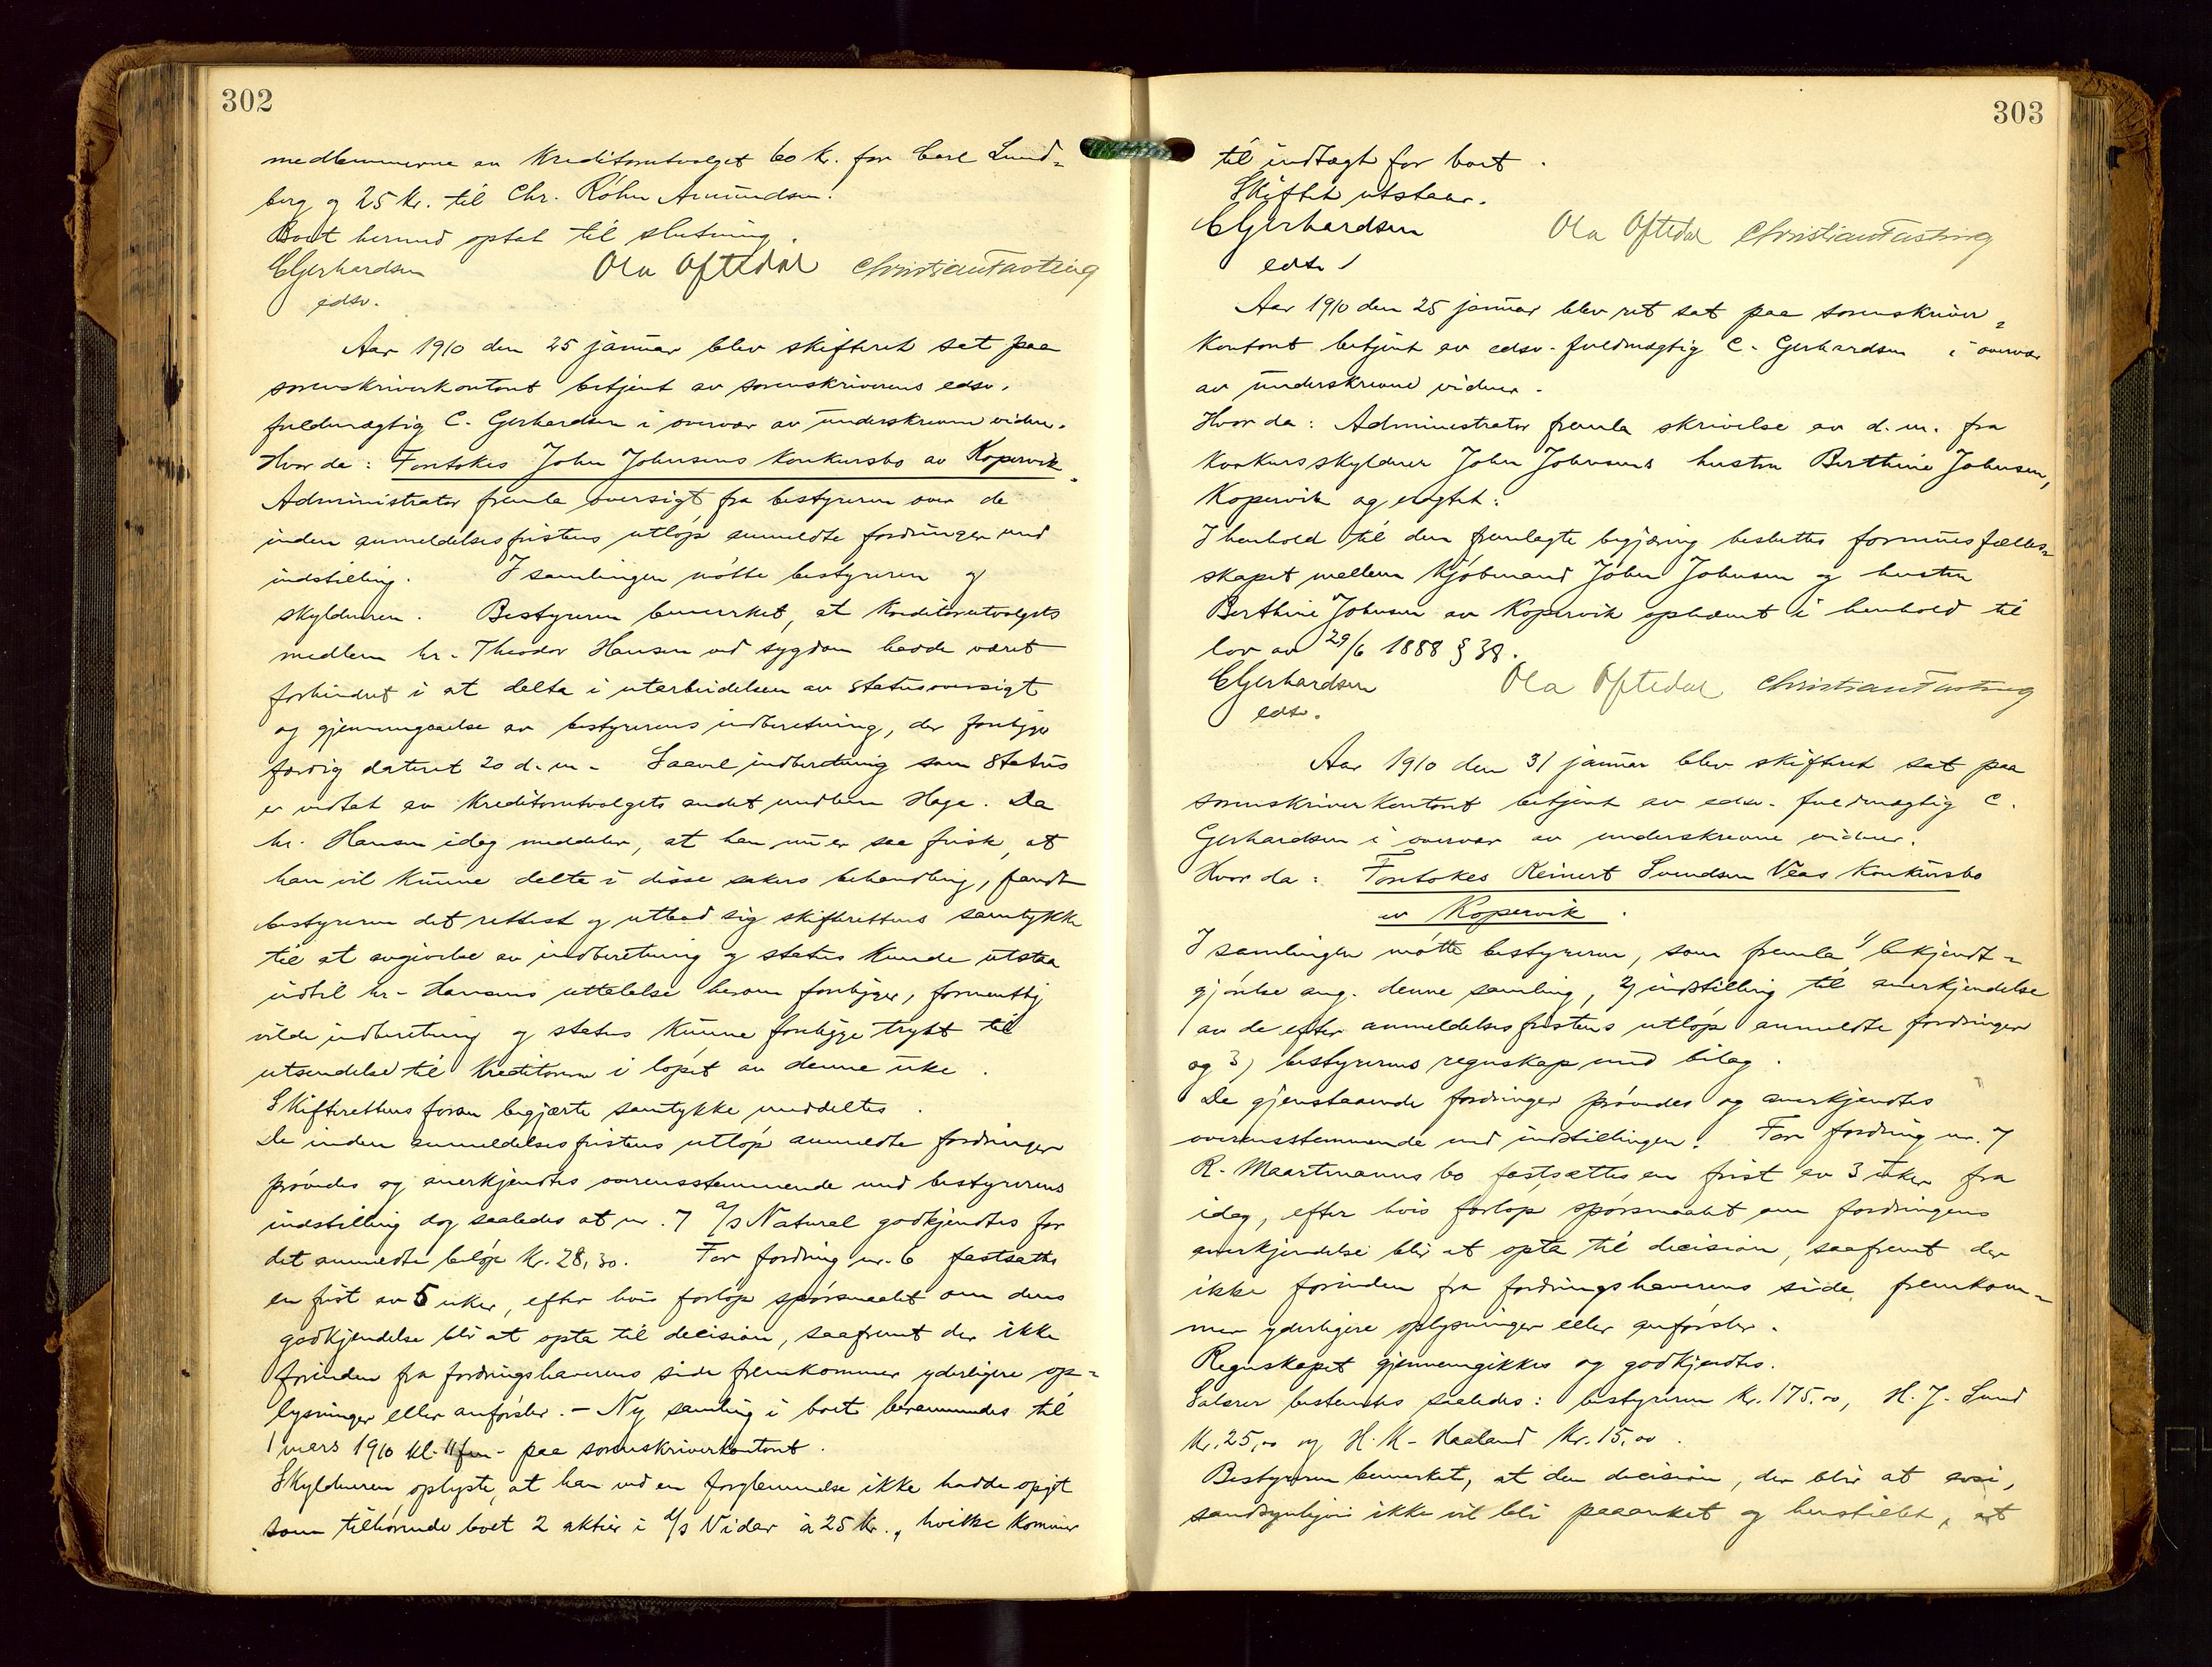 302
medlemmerne av kreditorutvalget 60 kr. for Carl Lund-
berg og 25 kr. til Chr. Røhn Amundsen.
Boet hermed optat til slutning.
CGerhardsen Ola Oftedal Christian Fasting
edsv.
Aar 1910 den 25 januar blev skifteret sat paa
sorenskriverkontoret betjent av sorenskriverens edsv.
fuldmægtig C. Gerhardsen i overvær av underskrevne vidner.
Hvor da: Fortokes John Johnsens konkursbo av Kopervik.
Administrator fremla oversigt fra bestyreren over de
inden anmeldelsesfristens utløp anmeldte fordringer med
indstilling. I samlingen møtte bestyreren og
skyldneren. Bestyreren bemerket, at kreditorutvalgets
medlem hr. Theodor Hansen ved sygdom hadde været
forhindret i at delta i utarbeidelsen av statusoversigt
og gjennemgaaelse av bestyrerens indberetning, der foreligger
færdig dateret 20 d.m. Saavel indberetning som status
er vedtat av kreditorutvalgets andet medlem Hage. Da
hr. Hansen idag meddeler, at han nu er saa frisk, at
han vil kunne delta i disse sakers behandling, fandt
bestyreren det rettest og utbad sig skifterettens samtykke
til at avgivelse av indberetning og status kunde utstaa
indtil hr. Hansens uttalelse herom foreligger, formentlig
vilde indberetning og status kunne foreligge trykt til
utsendelse til kreditorerne i løpet av denne uke.
Skifterettens foran begjærte samtykke meddeltes.
De inden anmeldelsesfristens utløp anmeldte fordringer
prøvedes og anerkjendtes overensstemmende med bestyrerens
indstilling dog saaledes at nr. 7 a/s Natural godkjendtes for
det anmeldte beløp Kr. 28,30. For fordring nr. 6 fastsattes
en frist av 5 uker, efter hvis forløp spørsmaalet om dens
godkjendelse blir at opta til decision, saafremt der ikke
forinden fra fordringshaverens side fremkommer yderligere op-
lysninger eller anførsler. - Ny samling i boet berammedes til
1 mars 1910 kl. 11 fm. paa sorenskriverkontoret.
Skyldneren oplyste, at han ved en forglemmelse ikke hadde opgit
som tilhørende boet 2 aktier i a/s Vidar à 25 kr., hvilke kommer
303
til indtægt for boet.
Skiftet utstaar.
CGerhardsen Ola Oftedal Christian Fasting
edsv.
Aar 1910 den 25 januar blev ret sat paa sorenskriver-
kontoret betjent av edsv. fuldmægtig C. Gerhardsen i overvær
av underskrevne vidner.
Hvor da: Administrator fremla skrivelse av d.m. fra
konkursskyldner John Johnsens hustru Berthine Johnsen,
Kopervik og eragtet:
I henhold til den fremlagte begjæring besluttes formuesfælles-
skapet mellem kjøbmand John Johnsen og hustru
Berthine Johnsen av Kopervik ophævet i henhold til
lov av 29/6 1888 § 38.
CGerhardsen Ola Oftedal Christian Fasting
edsv.
Aar 1910 den 31 januar blev skifteret sat paa
sorenskriverkontoret betjent av edsv. fuldmægtig C.
Gerhardsen i overvær av underskrevne vidner.
Hvor da: Fortokes Reinert Svendsen Veas konkursbo
av Kopervik.
I samlingen møtte bestyreren, som fremla 1) bekjendt-
gjørelse ang. denne samling, 2) indstilling til anerkjendelse
av de efter anmeldelsesfristens utløp anmeldte fordringer
og 3) bestyrerens regnskap med bilag.
De gjenstaaende fordringer prøvedes og anerkjendtes
overensstemmende med indstillingen. For fordring nr. 7
R. Maartmanns bo fastsattes en frist av 3 uker fra
idag, efter hvis forløp spørsmaalet om fordringens
anerkjendelse blir at opta til decision, saafremt der
ikke forinden fra fordringshaverens side fremkom-
mer yderligere oplysninger eller anførsler.
Regnskapet gjennemgikkes og godkjendtes.
Salærer bestemtes saaledes: bestyreren Kr. 175,00, H. J. Lund
Kr. 25,00 og H. K. Haaland Kr. 15,00.
Bestyreren bemerket, at den decision, der blir at avsi,
sandsynligvis ikke vil bli paaanket og henstillet, at